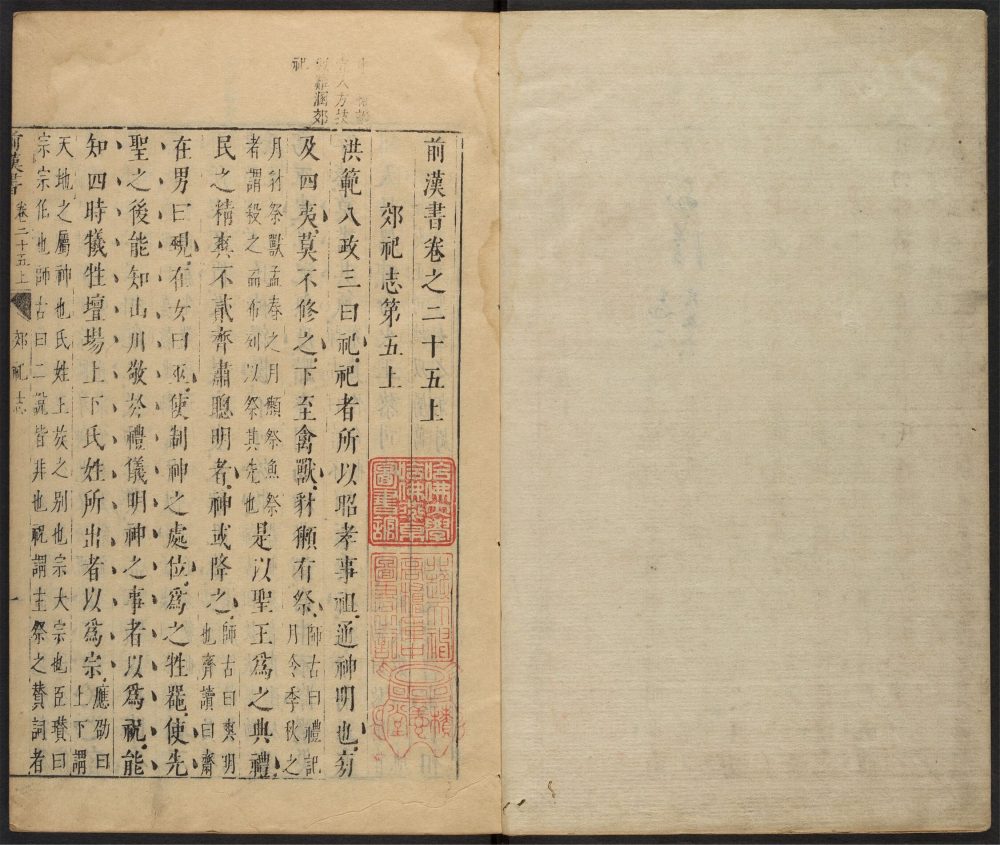 前漢書卷之二十五上
郊祀志第五上
洪範八政三曰祀祀者所以昭孝事祖通神明也旁
及四夷莫不修之下至禽獸豺獺有祭師古曰禮記月令季秋之
月豺祭獸孟春之月獺祭魚祭者謂殺之而布列以祭其先也是以聖王爲之典禮
民之精爽不貳齊肅聰明者神或降之師古曰爽明也齊讀曰齋
在男曰覡在女曰巫使制神之處位爲之牲器使先
聖之後能知山川敬於禮儀明神之事者以爲祝能
知四時犧牲壇場上下氏姓所出者以爲宗應劭曰上下謂
天地之屬神也氏姓王族之别也宗大宗也臣瓚曰
宗宗伯也師古曰二說皆非也祝謂主祭之贊詞者
前漢書 卷二十五上 郊祀志 一
哈佛大學哈佛燕京圖書館